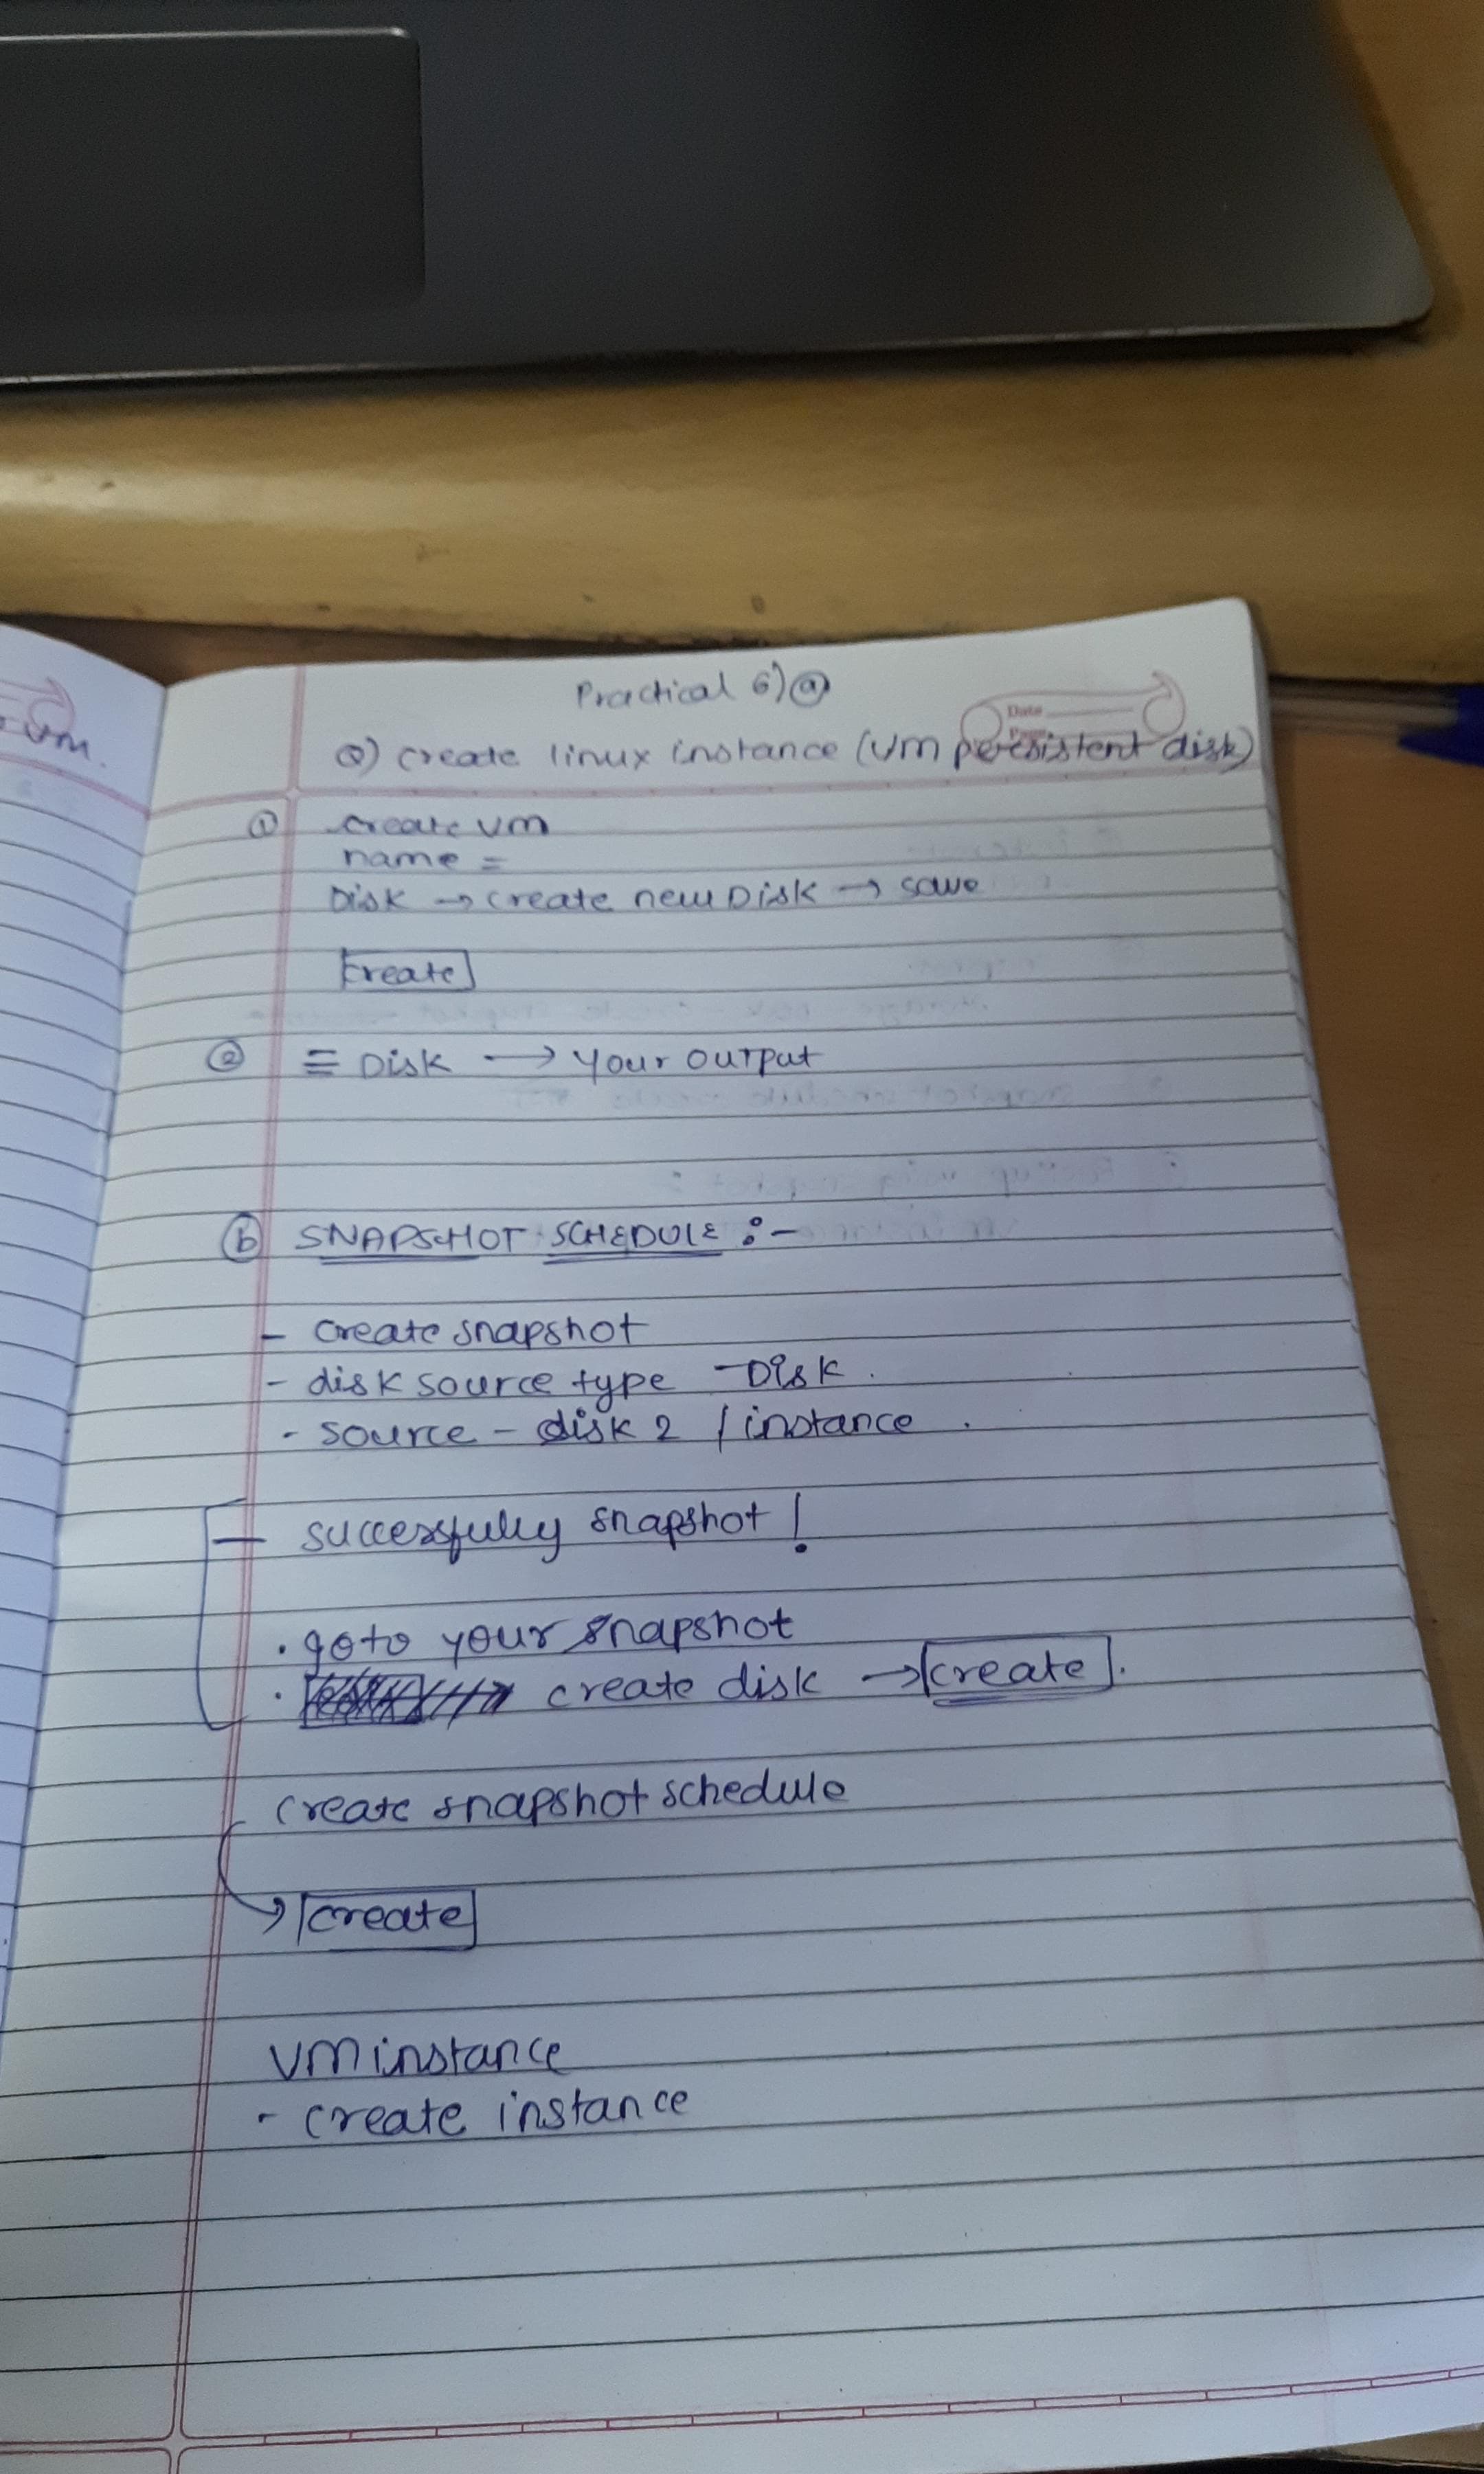 Practical 6) ⓐ
Date
Q) create linux instance (VM persistent disk)
vm.
① create vm
name =
Disk → create new Disk → save
create
② ≡ Disk → your output
ⓑ SNAPSHOT SCHEDULE :-
- create snapshot
- disk source type - Disk.
- source - disk 2 / instance.
- successfully snapshot!
. goto your snapshot
. create disk → create.
create snapshot schedule
→ create
VM instance
- create instance